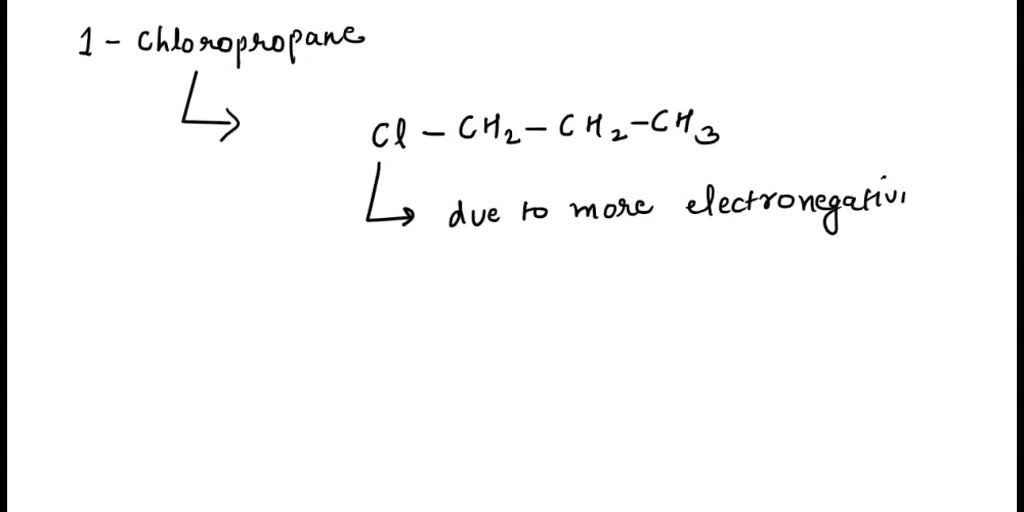 1 - chloropropane
Cl - CH2 - CH2 - CH3
due to more electronegativi